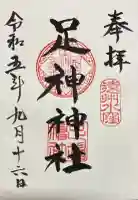 奉拝
足神神社
令和五年九月十六日